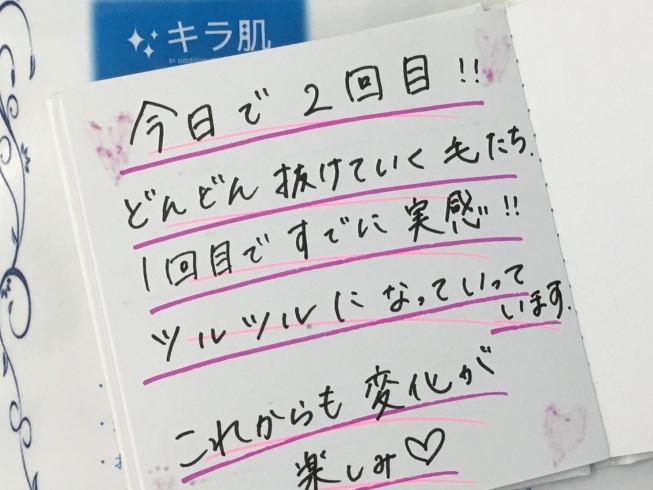 キラ肌
今日で2回目!!
どんどん抜けていく毛たち.
1回目ですでに実感!!
ツルツルになっていって
います.
これからも変化が
楽しみ♡